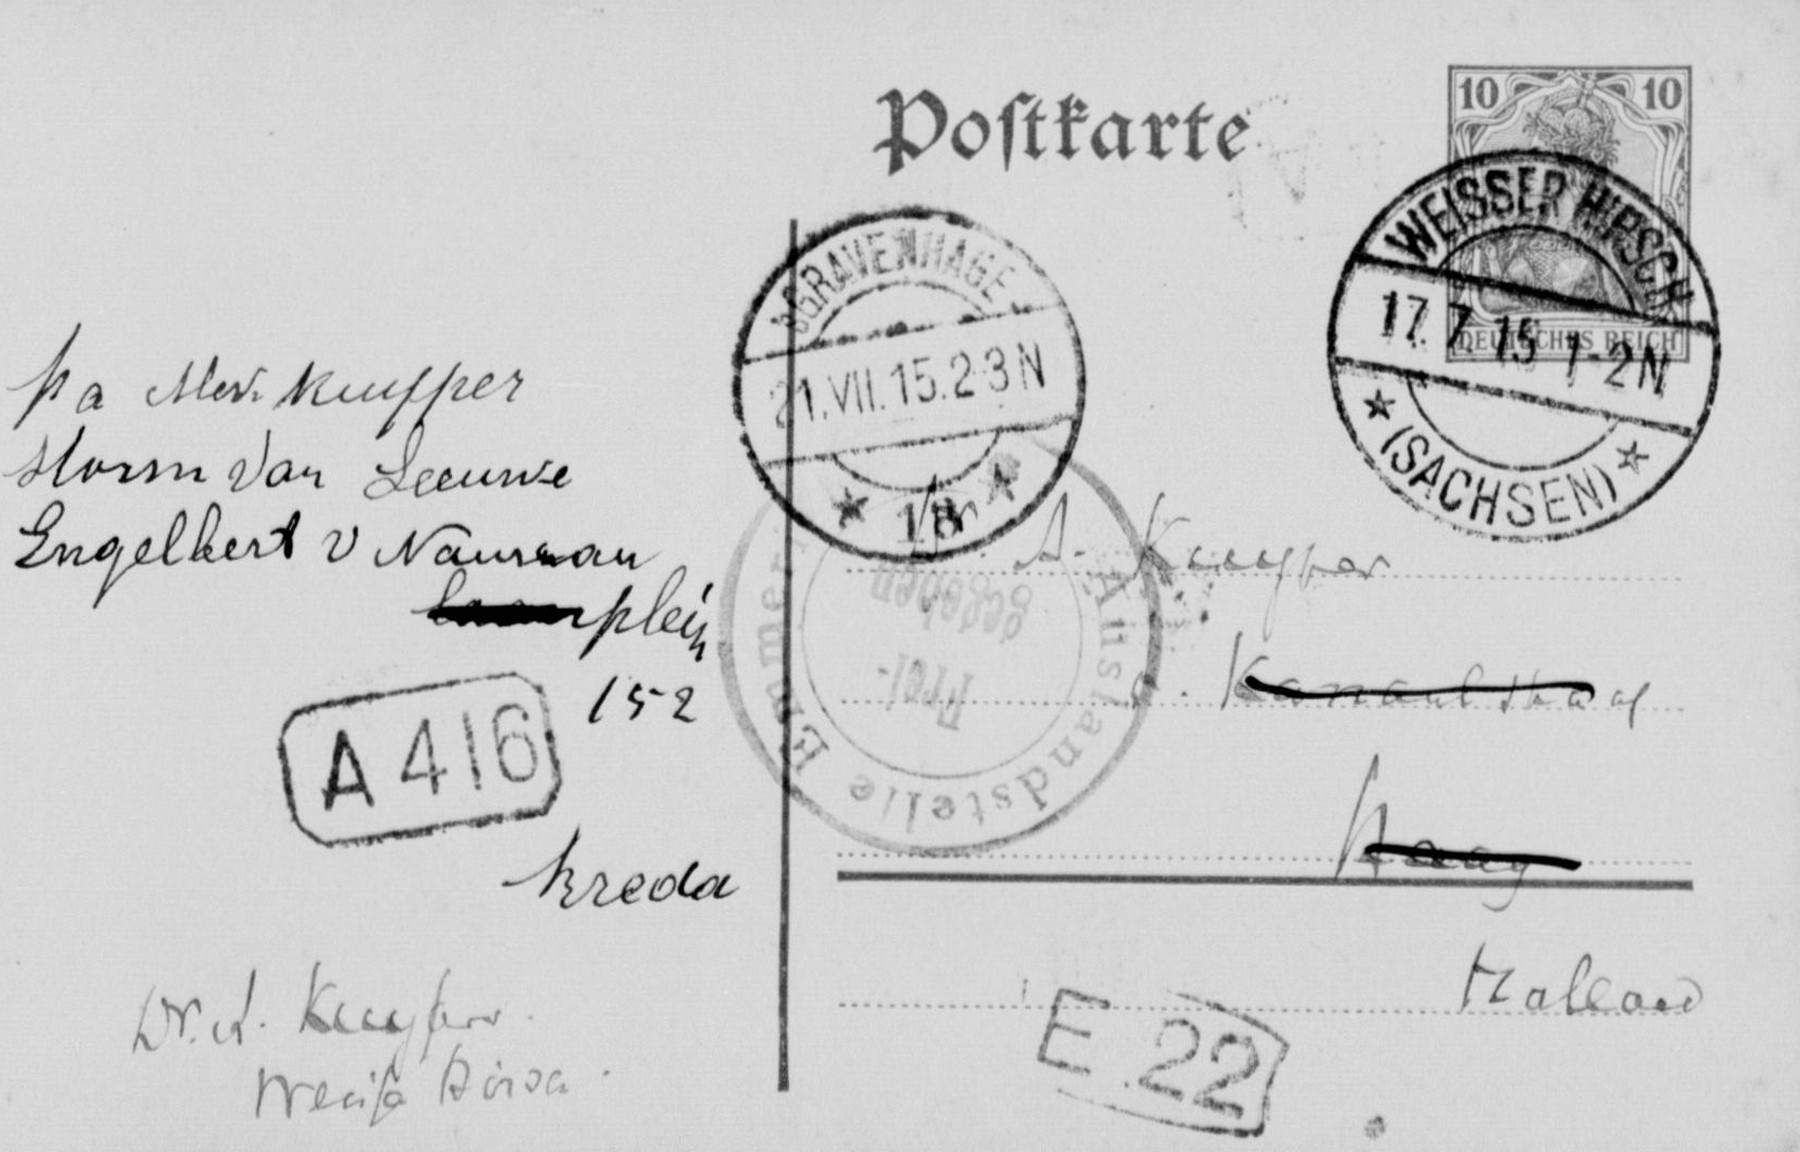 Postkarte
10 10
DEUTSCHES REICH
WEISSER HIRSCH
17.7.15 1-2N
★ (SACHSEN) ★
'sGRAVENHAGE
21.VII.15.2-3N
★ 18 ★
Auslandstelle Emmerich
Frei-
gegeben
pa Mev. Kuyper
Storm van Leeuwe
Engelbert v Nassau
plein
152
A 416
Breda
Dr. A. Kuyper.
A. Kuyper
Kanaalstraat
Haag
Holland
E 22